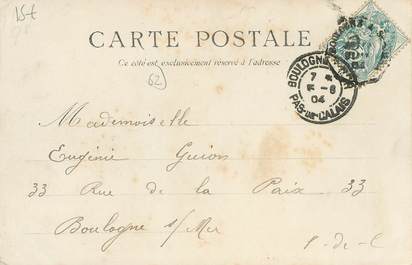 15t
CARTE POSTALE
Ce côté est exclusivement réservé à l'adresse
62
BOULOGNE
7
-6
04
PAS-DE-CALAIS
Mademoiselle
Eugénie Guion
33 Rue de la Paix 33
Boulogne s/Mer
P-de-C